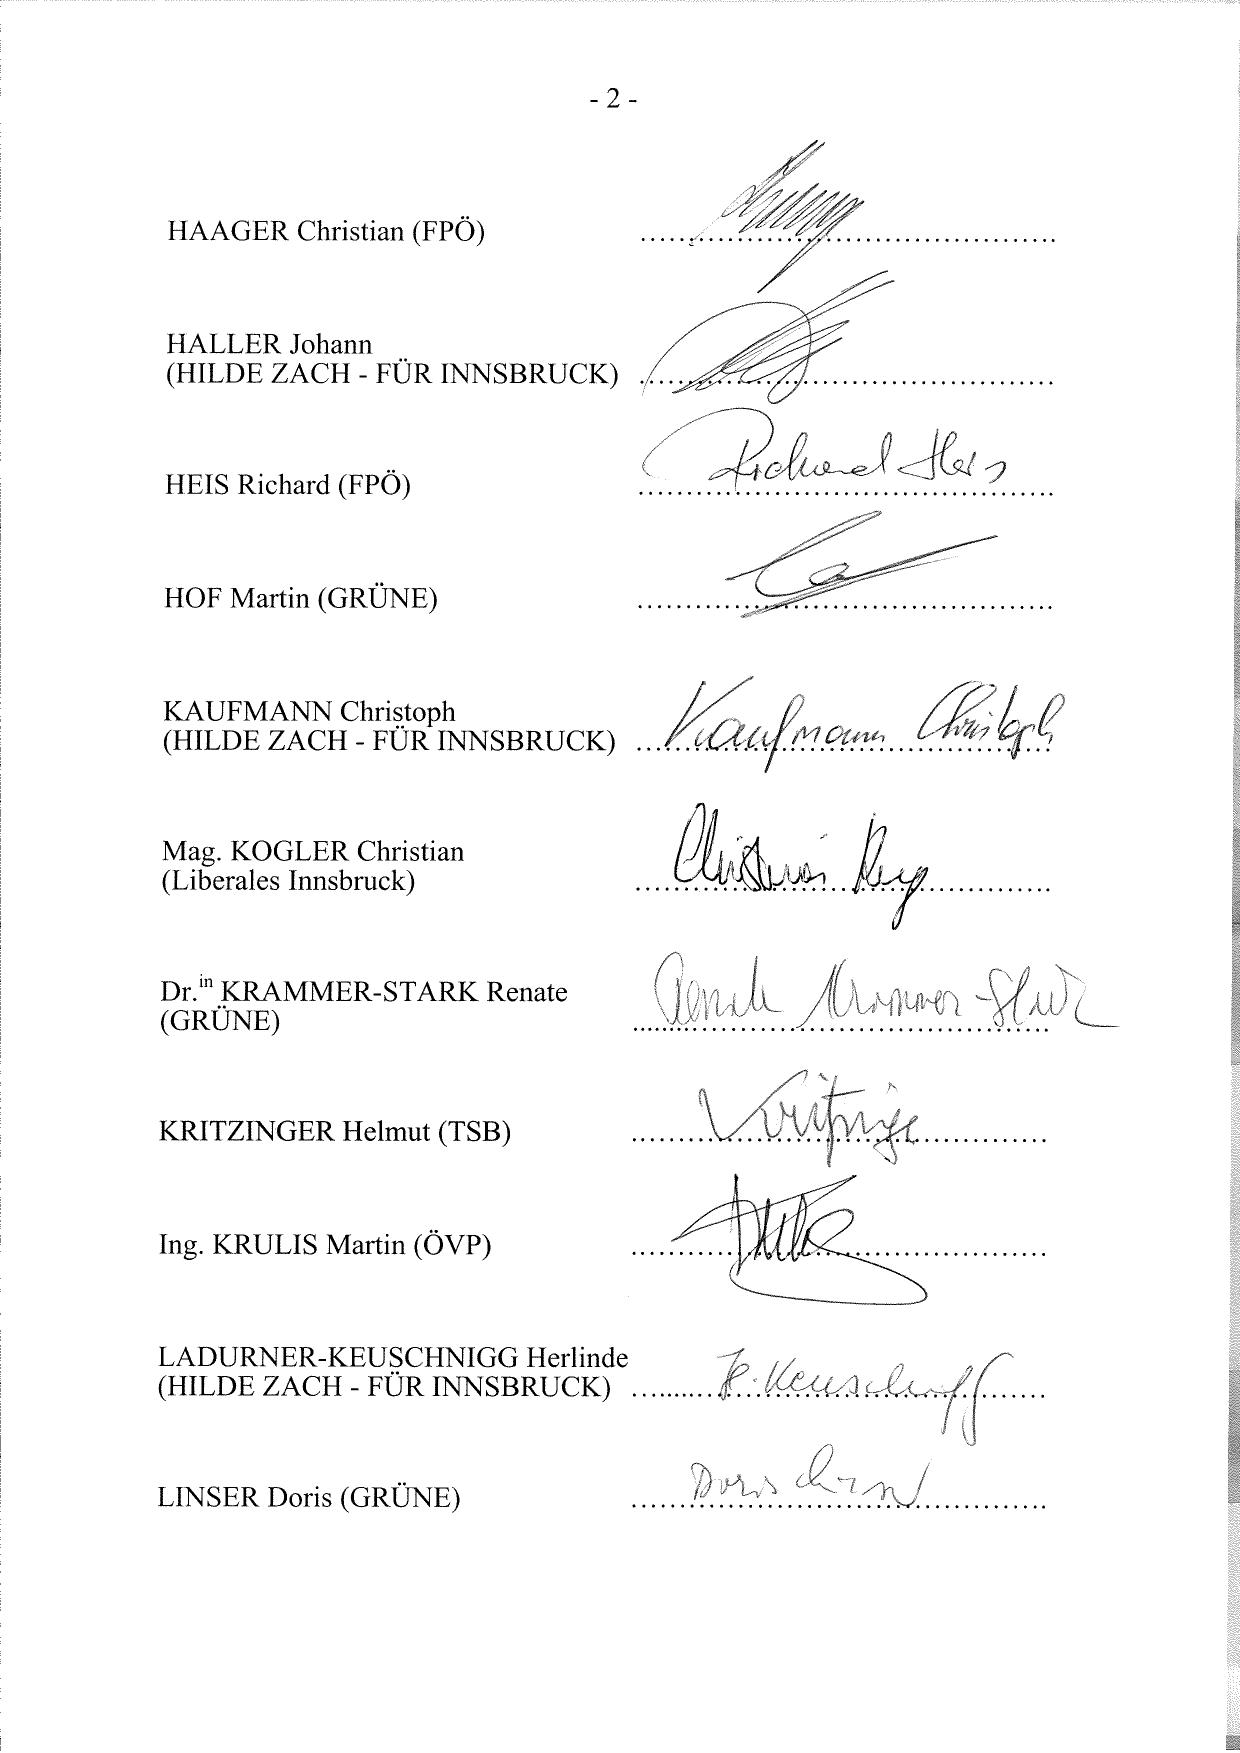 - 2 -
HAAGER Christian (FPÖ)
HALLER Johann
(HILDE ZACH - FÜR INNSBRUCK)
Richard Heis
HEIS Richard (FPÖ)
HOF Martin (GRÜNE)
KAUFMANN Christoph
(HILDE ZACH - FÜR INNSBRUCK) Kaufmann Christoph
Mag. KOGLER Christian
(Liberales Innsbruck) Christian
Dr.in KRAMMER-STARK Renate
(GRÜNE) Renate Krammer-Stark
KRITZINGER Helmut (TSB) Kritzinger
Ing. KRULIS Martin (ÖVP)
LADURNER-KEUSCHNIGG Herlinde
(HILDE ZACH - FÜR INNSBRUCK) H. Keuschnigg
LINSER Doris (GRÜNE) Doris Linser